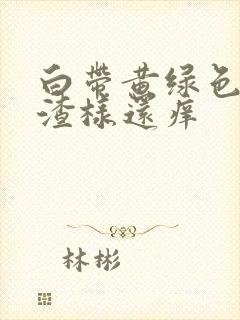 白带黄绿色
渣样还痒
林彬